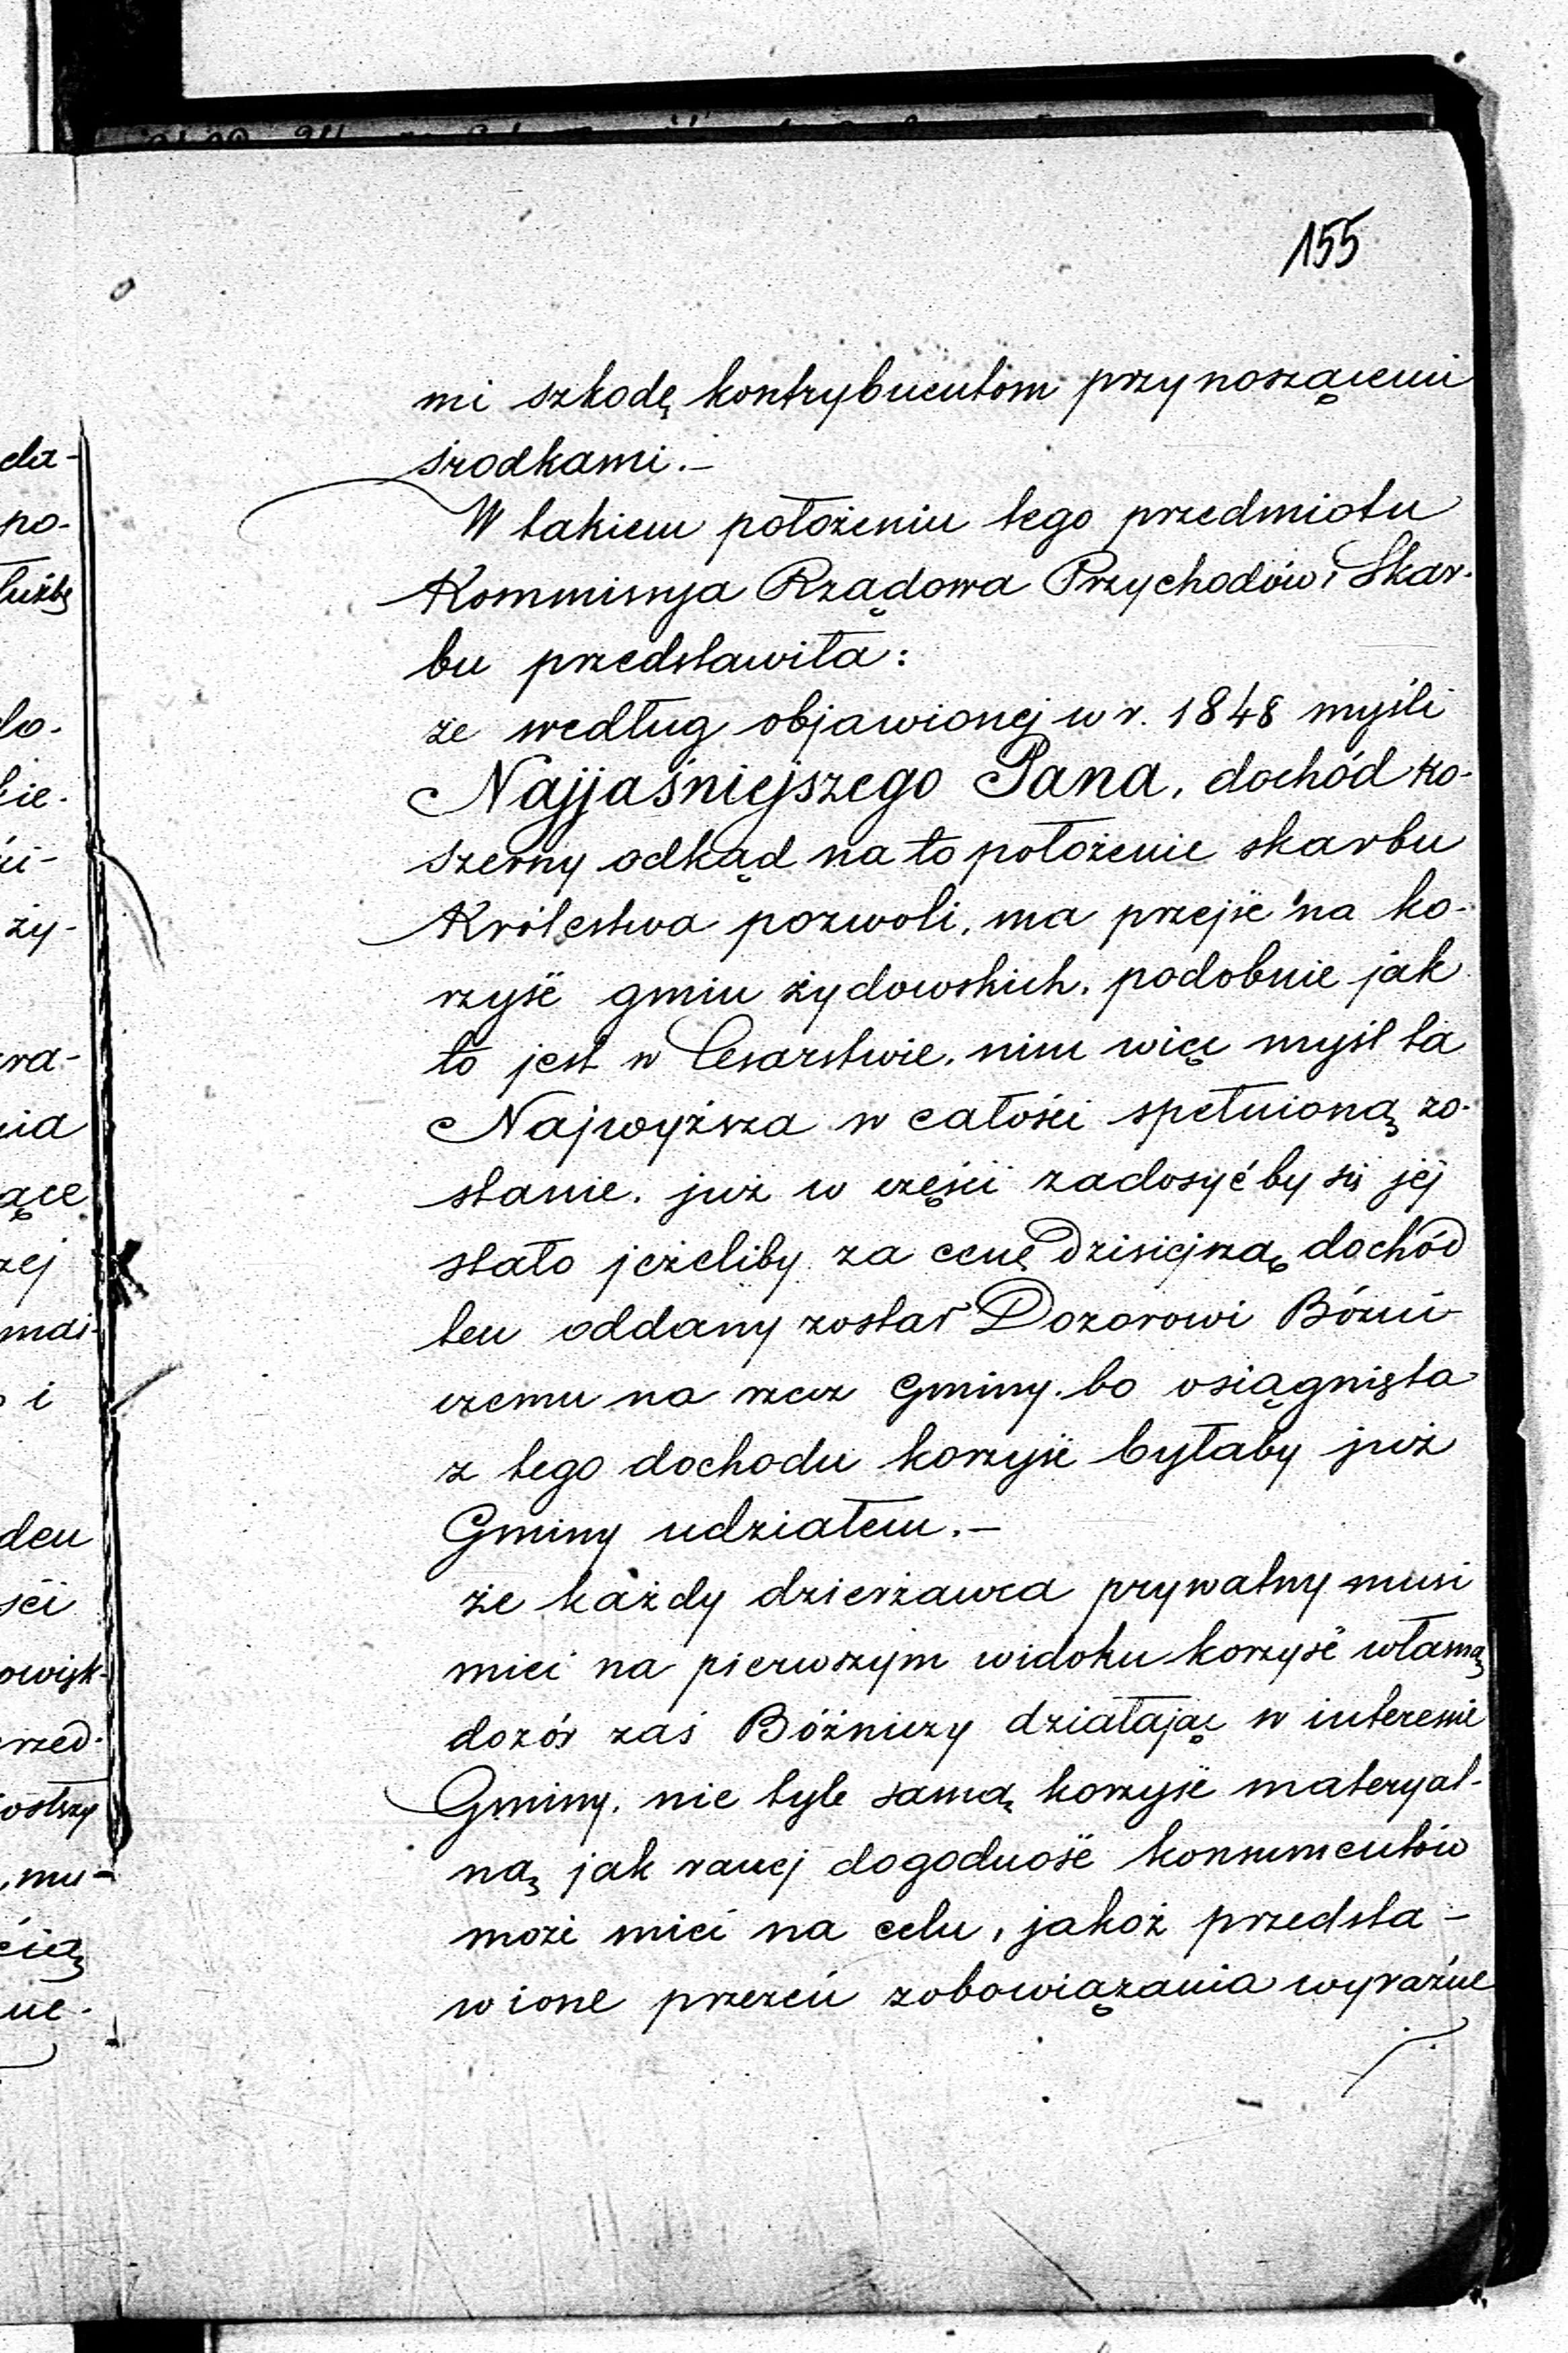 155
mi szkodę kontrybuentom przynoszącemi
środkami.—
W takiem położeniu tego przedmiotu
Kommissya Rządowa Przychodów i Skar-
bu przedstawiła:
że według objawionej w r. 1848 myśli
Najjaśniejszego Pana, dochód ko-
szerny odkąd na to położenie skarbu
Królestwa pozwoli, ma przejść na ko-
rzyść gmin żydowskich, podobnie jak
to jest w Cesarstwie, nim więc myśl ta
Najwyższa w całości spełnioną zo-
stanie, już w części zadosyć by się jej
stało jeżeliby za cenę dzisiejszą dochód
ten oddany został Dozorowi Bóżni-
czemu na rzecz Gminy, bo osiągnięta
z tego dochodu korzyść byłaby już
Gminy udziałem.—
że każdy dzierżawca prywatny musi
mieć na pierwszym widoku korzyść własną
dozór zaś Bóżniczy działając w interessie
Gminy, nie tyle samą korzyść materyal-
ną jak raczej dogodność konsumentów
może mieć na celu, jakoż przedsta-
wione przezeń zobowiązania wyraźne
da-
po-
łużbę
do-
kie-
ży-
ące
zej
i
den
ści
owięk-
rzed-
mu-
cią
ne-